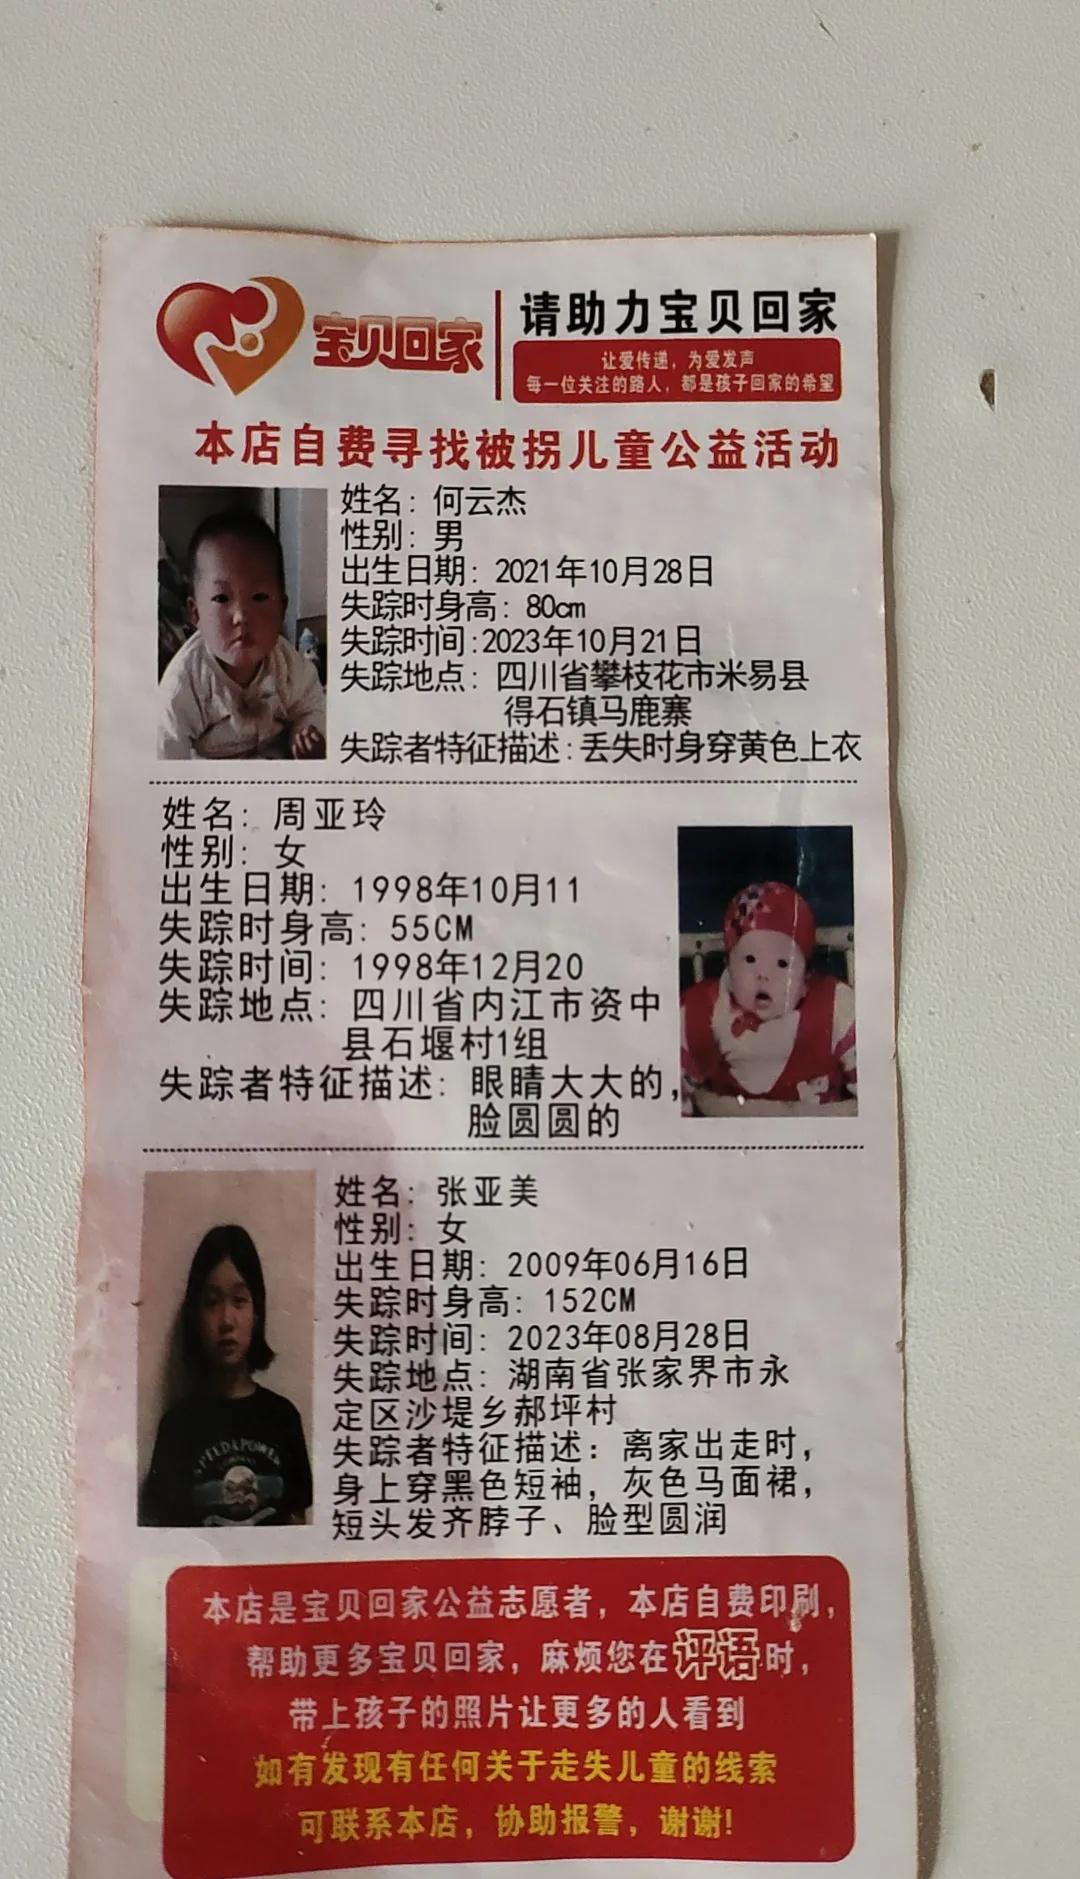 宝贝回家
请助力宝贝回家
让爱传递，为爱发声
每一位关注的路人，都是孩子回家的希望
本店自费寻找被拐儿童公益活动
姓名：何云杰
性别：男
出生日期：2021年10月28日
失踪时身高：80cm
失踪时间：2023年10月21日
失踪地点：四川省攀枝花市米易县
得石镇马鹿寨
失踪者特征描述：丢失时身穿黄色上衣
姓名：周亚玲
性别：女
出生日期：1998年10月11
失踪时身高：55CM
失踪时间：1998年12月20
失踪地点：四川省内江市资中
县石堰村1组
失踪者特征描述：眼睛大大的，
脸圆圆的
姓名：张亚美
性别：女
出生日期：2009年06月16日
失踪时身高：152CM
失踪时间：2023年08月28日
失踪地点：湖南省张家界市永
定区沙堤乡郝坪村
失踪者特征描述：离家出走时，
身上穿黑色短袖，灰色马面裙，
短头发齐脖子、脸型圆润
SPEED&POWER
本店是宝贝回家公益志愿者，本店自费印刷，
帮助更多宝贝回家，麻烦您在评语时，
带上孩子的照片让更多的人看到
如有发现有任何关于走失儿童的线索
可联系本店，协助报警，谢谢！